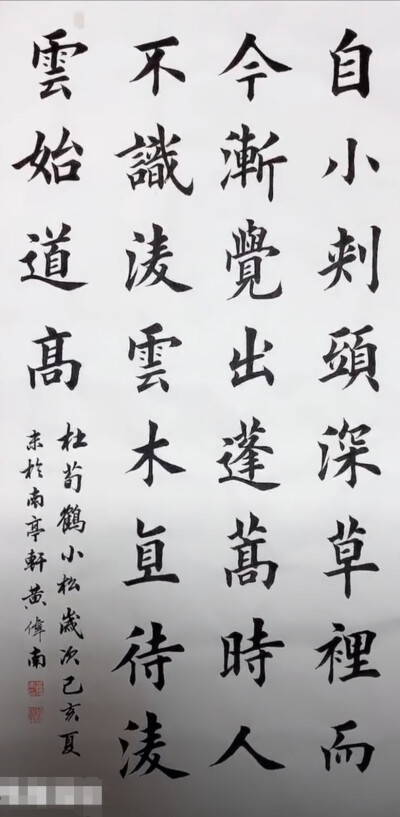 自小刾頭深草裡而
今漸覺出蓬蒿時人
不識淩雲木直待淩
雲始道髙
杜荀鶴小松歲次己亥夏
末於南亭軒黃偉南